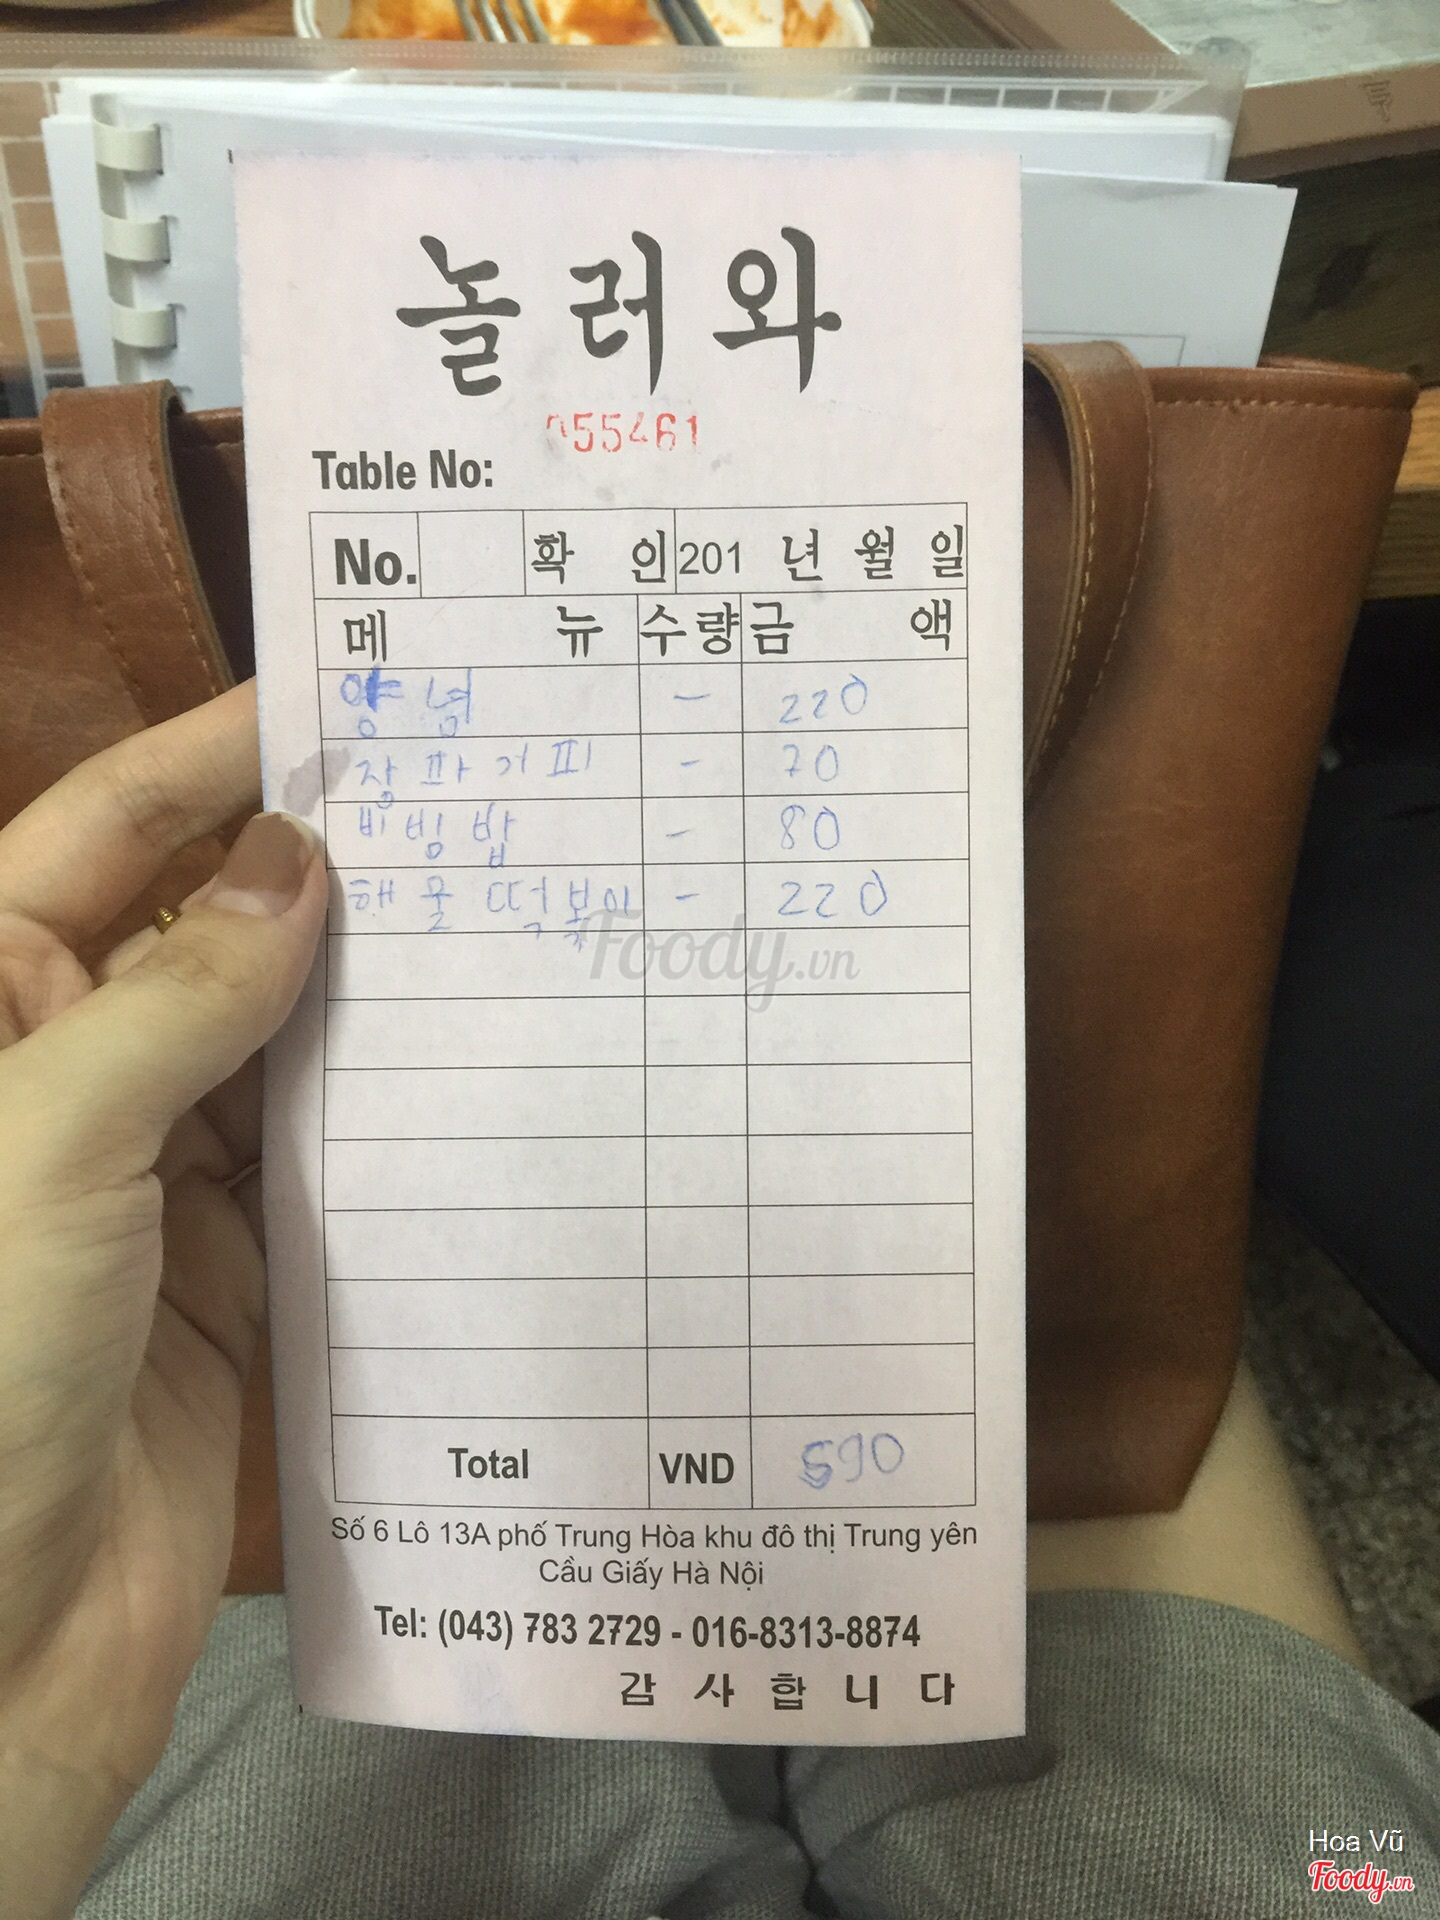 놀러와
055461
Table No:
No. 확 인 201 년 월 일
메 뉴 수량 금 액
양념 - 220
짱파거피 - 70
비빔밥 - 80
해물떡볶이 - 220
Foody.vn
Total VND 590
Số 6 Lô 13A phố Trung Hòa khu đô thị Trung yên
Cầu Giấy Hà Nội
Tel: (043) 783 2729 - 016-8313-8874
감 사 합 니 다
Hoa Vũ
Foody.vn